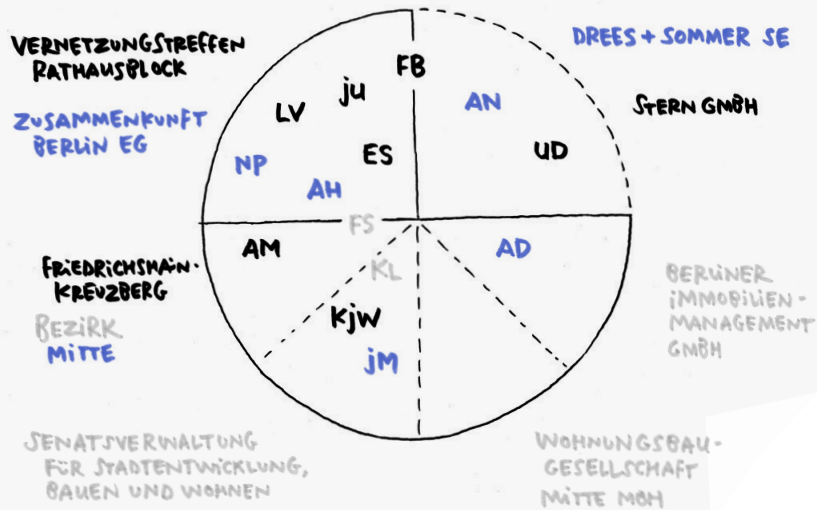 VERNETZUNGSTREFFEN
RATHAUSBLOCK
ZUSAMMENKUNFT
BERLIN EG
DREES + SOMMER SE
STERN GMBH
FB
ju
LV
AN
ES
UD
NP
AH
FS
AM
AD
KL
KjW
jM
FRiEDRiCHSHAiN-
KREUZBERG
BEZiRK
MiTTE
BERLiNER
iMMOBiLiEN-
MANAGEMENT
GMBH
SENATSVERWALTUNG
FÜR STADTENTWiCKLUNG,
BAUEN UND WOHNEN
WOHNUNGSBAU-
GESELLSCHAFT
MiTTE MBH